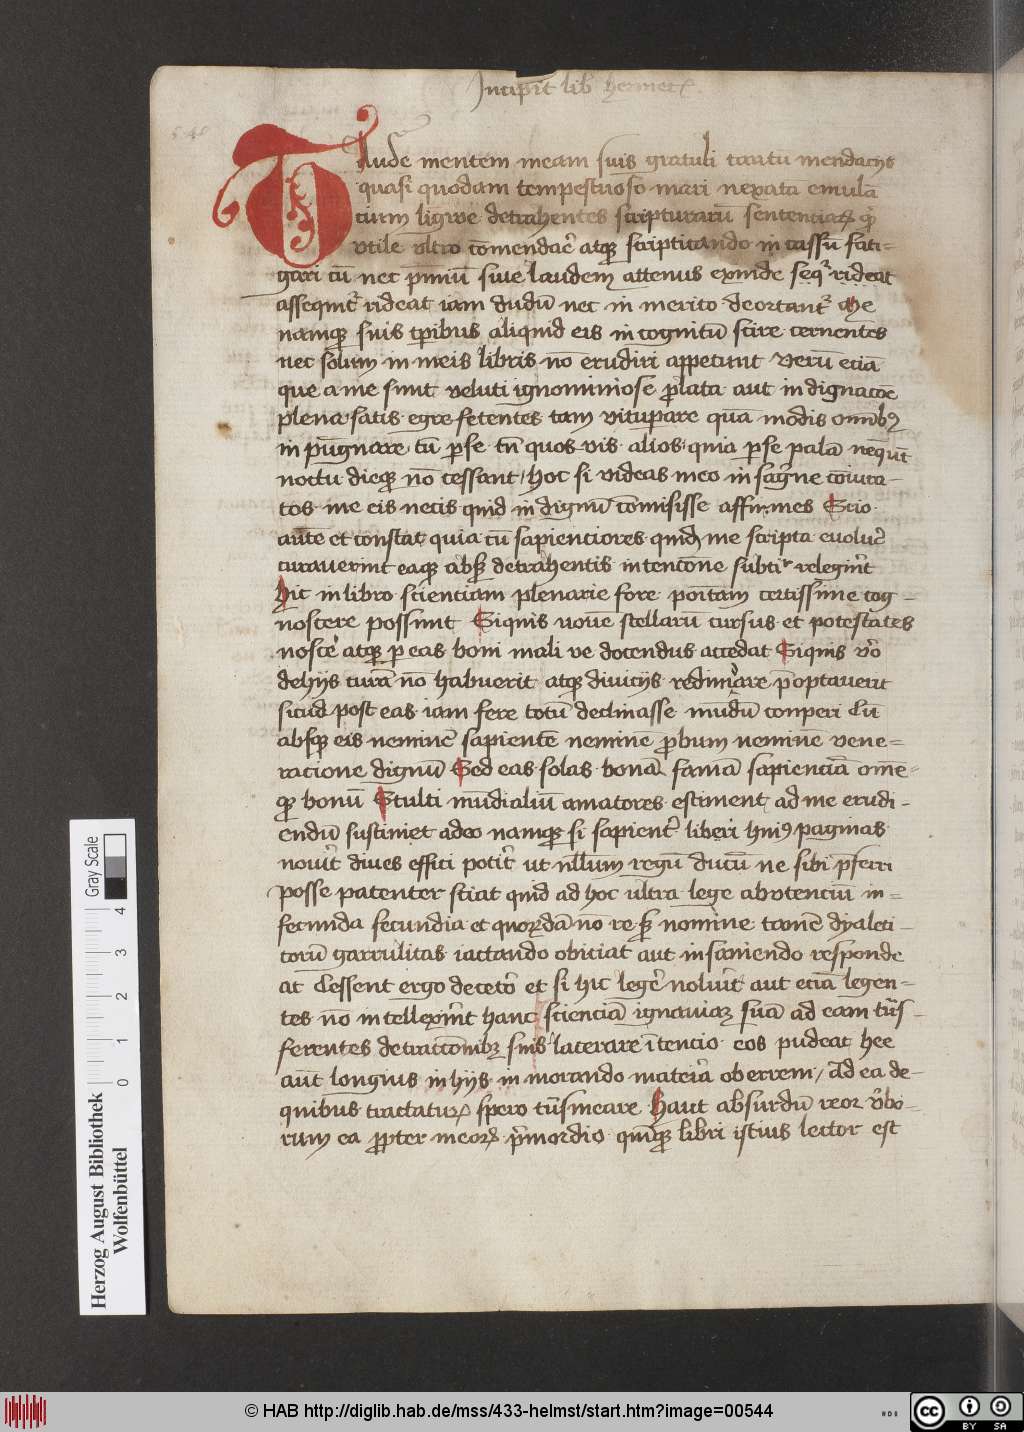 Incipit lib hermet
540
Tlude mentem meam suis gratuli tantū mendacijs
quasi quodam tempestuoso mari nexatā emula
cium ligwe detrahentes scripturarū sententiarꝫ qr̄
vtile vltro cōmendac̄ atqꝫ scriptitando in cassū fati=
gari cū nec pmiū siue laudem attenus exinde seqr̄ rideat
asseqint̄ rideat iam dudū nec in merito deortant̄ Me
namqꝫ suis tpibus aliquid eis in cognitū scire cernentes
nec solum in meis libris nō erudiri appetunt verū eciā
que a me sunt veluti ignominiose plata aut in dignacōe
plena satis egre fetentes tam vitupare quā modis omībꝯ
in pugnare tū pse tn̄ quos vis alios quia pse palā neqūt
noctu dieqꝫ nō cessant hoc si videas meo in sagne cōiura-
tos me eis necis quid in dignū cōmisisse affirmes Scio
autē et constat quia cū sapienciores quidē me scripta euoluc̄
curauerint eaqꝫ absꝫ detrahentis intencōne subtir relegint̄
Hic in libro scienciam plenarie fore poītam certissime cog-
noscere possunt Siquis nouē stellarū cursus et potestates
noscē atqꝫ p eas boni mali ve docendus accedat Siquis vo
dehijs curā nō habuerit atqꝫ diuicijs redimīare poptauerit
sicud post eas iam fere totū declinasse mūdū conperi Cū
absqꝫ eis neminē sapientē neminē pbum neminē vene=
racione dignū Sed eas solas bonā famā sapienciā ome=
qꝫ bonū Stulti mūdialiū amatores estiment ad me erudi-
endū sustiniet adeo namqꝫ si sapient̄ liberi huiꝯ paginas
nouīt diues effici potīt ut nllum regū ducū ne sibi pferri
posse patenter sciat quid ad hoc ultra lege abutenciū in=
fecunda fecundia et quorꝫdā nō re sꝫ nomine tanē dyaleti-
corū garrulitas iactando obiciat aut insaniendo responde
at Cessent ergo deceto et si hic legē noluīt aut eciā legen-
tes nō intellexint̄ hanc scienciā ignauiaꝫ suā ad eam tn̄s-
ferentes detraccōnibꝫ suis lacerare ītencio eos pudeat hee
aūt longius in hijs in morando materiā oberrem / Ad ea de-
quibus tractaturꝫ spero tn̄smeare Haut absurdū reor vbo-
rum ea ppter meorꝫ pmordio quīqꝫ libri istius lector est
Herzog August Bibliothek
Wolfenbüttel
0 1 2 3 4
Gray Scale
© HAB http://diglib.hab.de/mss/433-helmst/start.htm?image=00544
HAB
cc BY SA